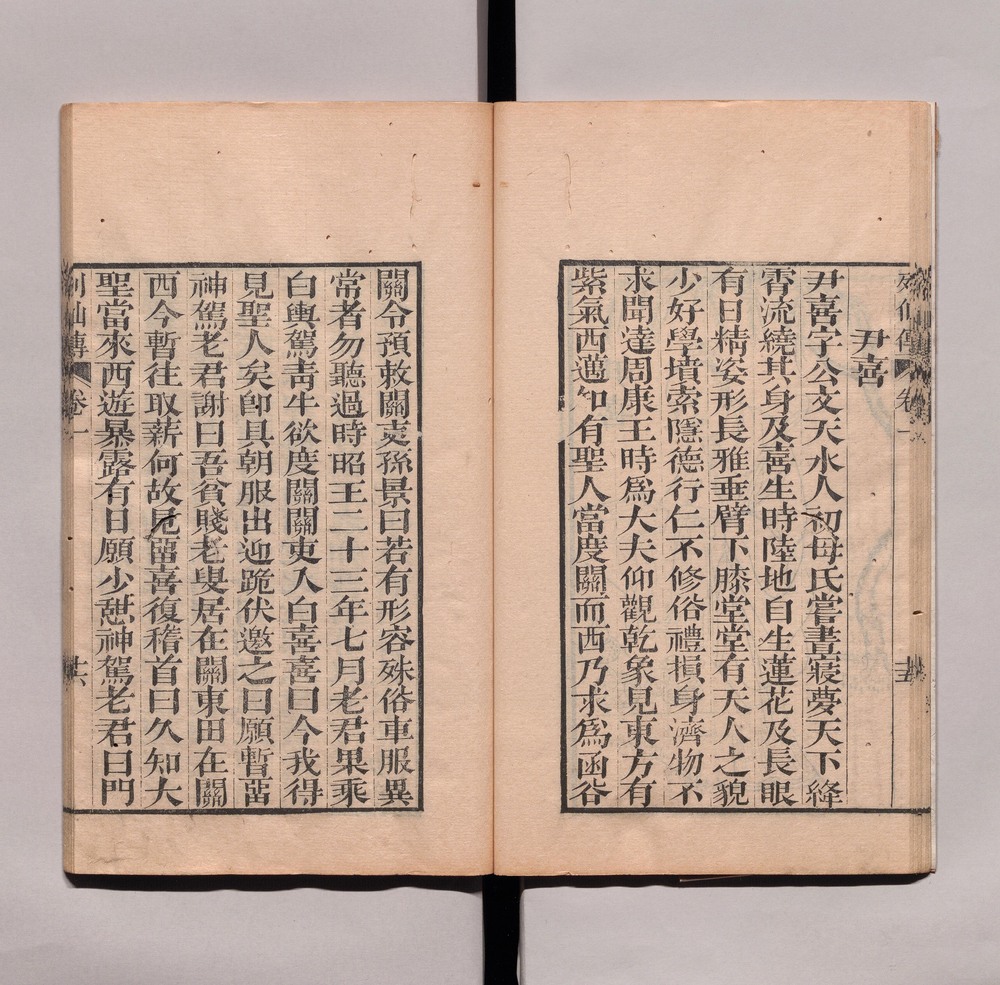 列仙傳 卷一 十五
尹喜
尹喜字公文天水人初母氏嘗晝寢夢天下絳
霄流繞其身及喜生時陸地自生蓮花及長眼
有日精姿形長雅垂臂下膝堂堂有天人之貌
少好學墳索隱德行仁不修俗禮損身濟物不
求聞達周康王時爲大夫仰觀乾象見東方有
紫氣西邁知有聖人當度關而西乃求爲函谷
關令預敕關吏孫景曰若有形容殊俗車服異
常者勿聽過時昭王二十三年七月老君果乘
白輿駕青牛欲度關關吏入白喜喜曰今我得
見聖人矣卽具朝服出迎跪伏邀之曰願暫畱
神駕老君謝曰吾貧賤老叟居在關東田在關
西今暫往取薪何故見畱喜復稽首曰久知大
聖當來西遊暴露有日願少憇神駕老君曰門
列仙傳 卷一 十六